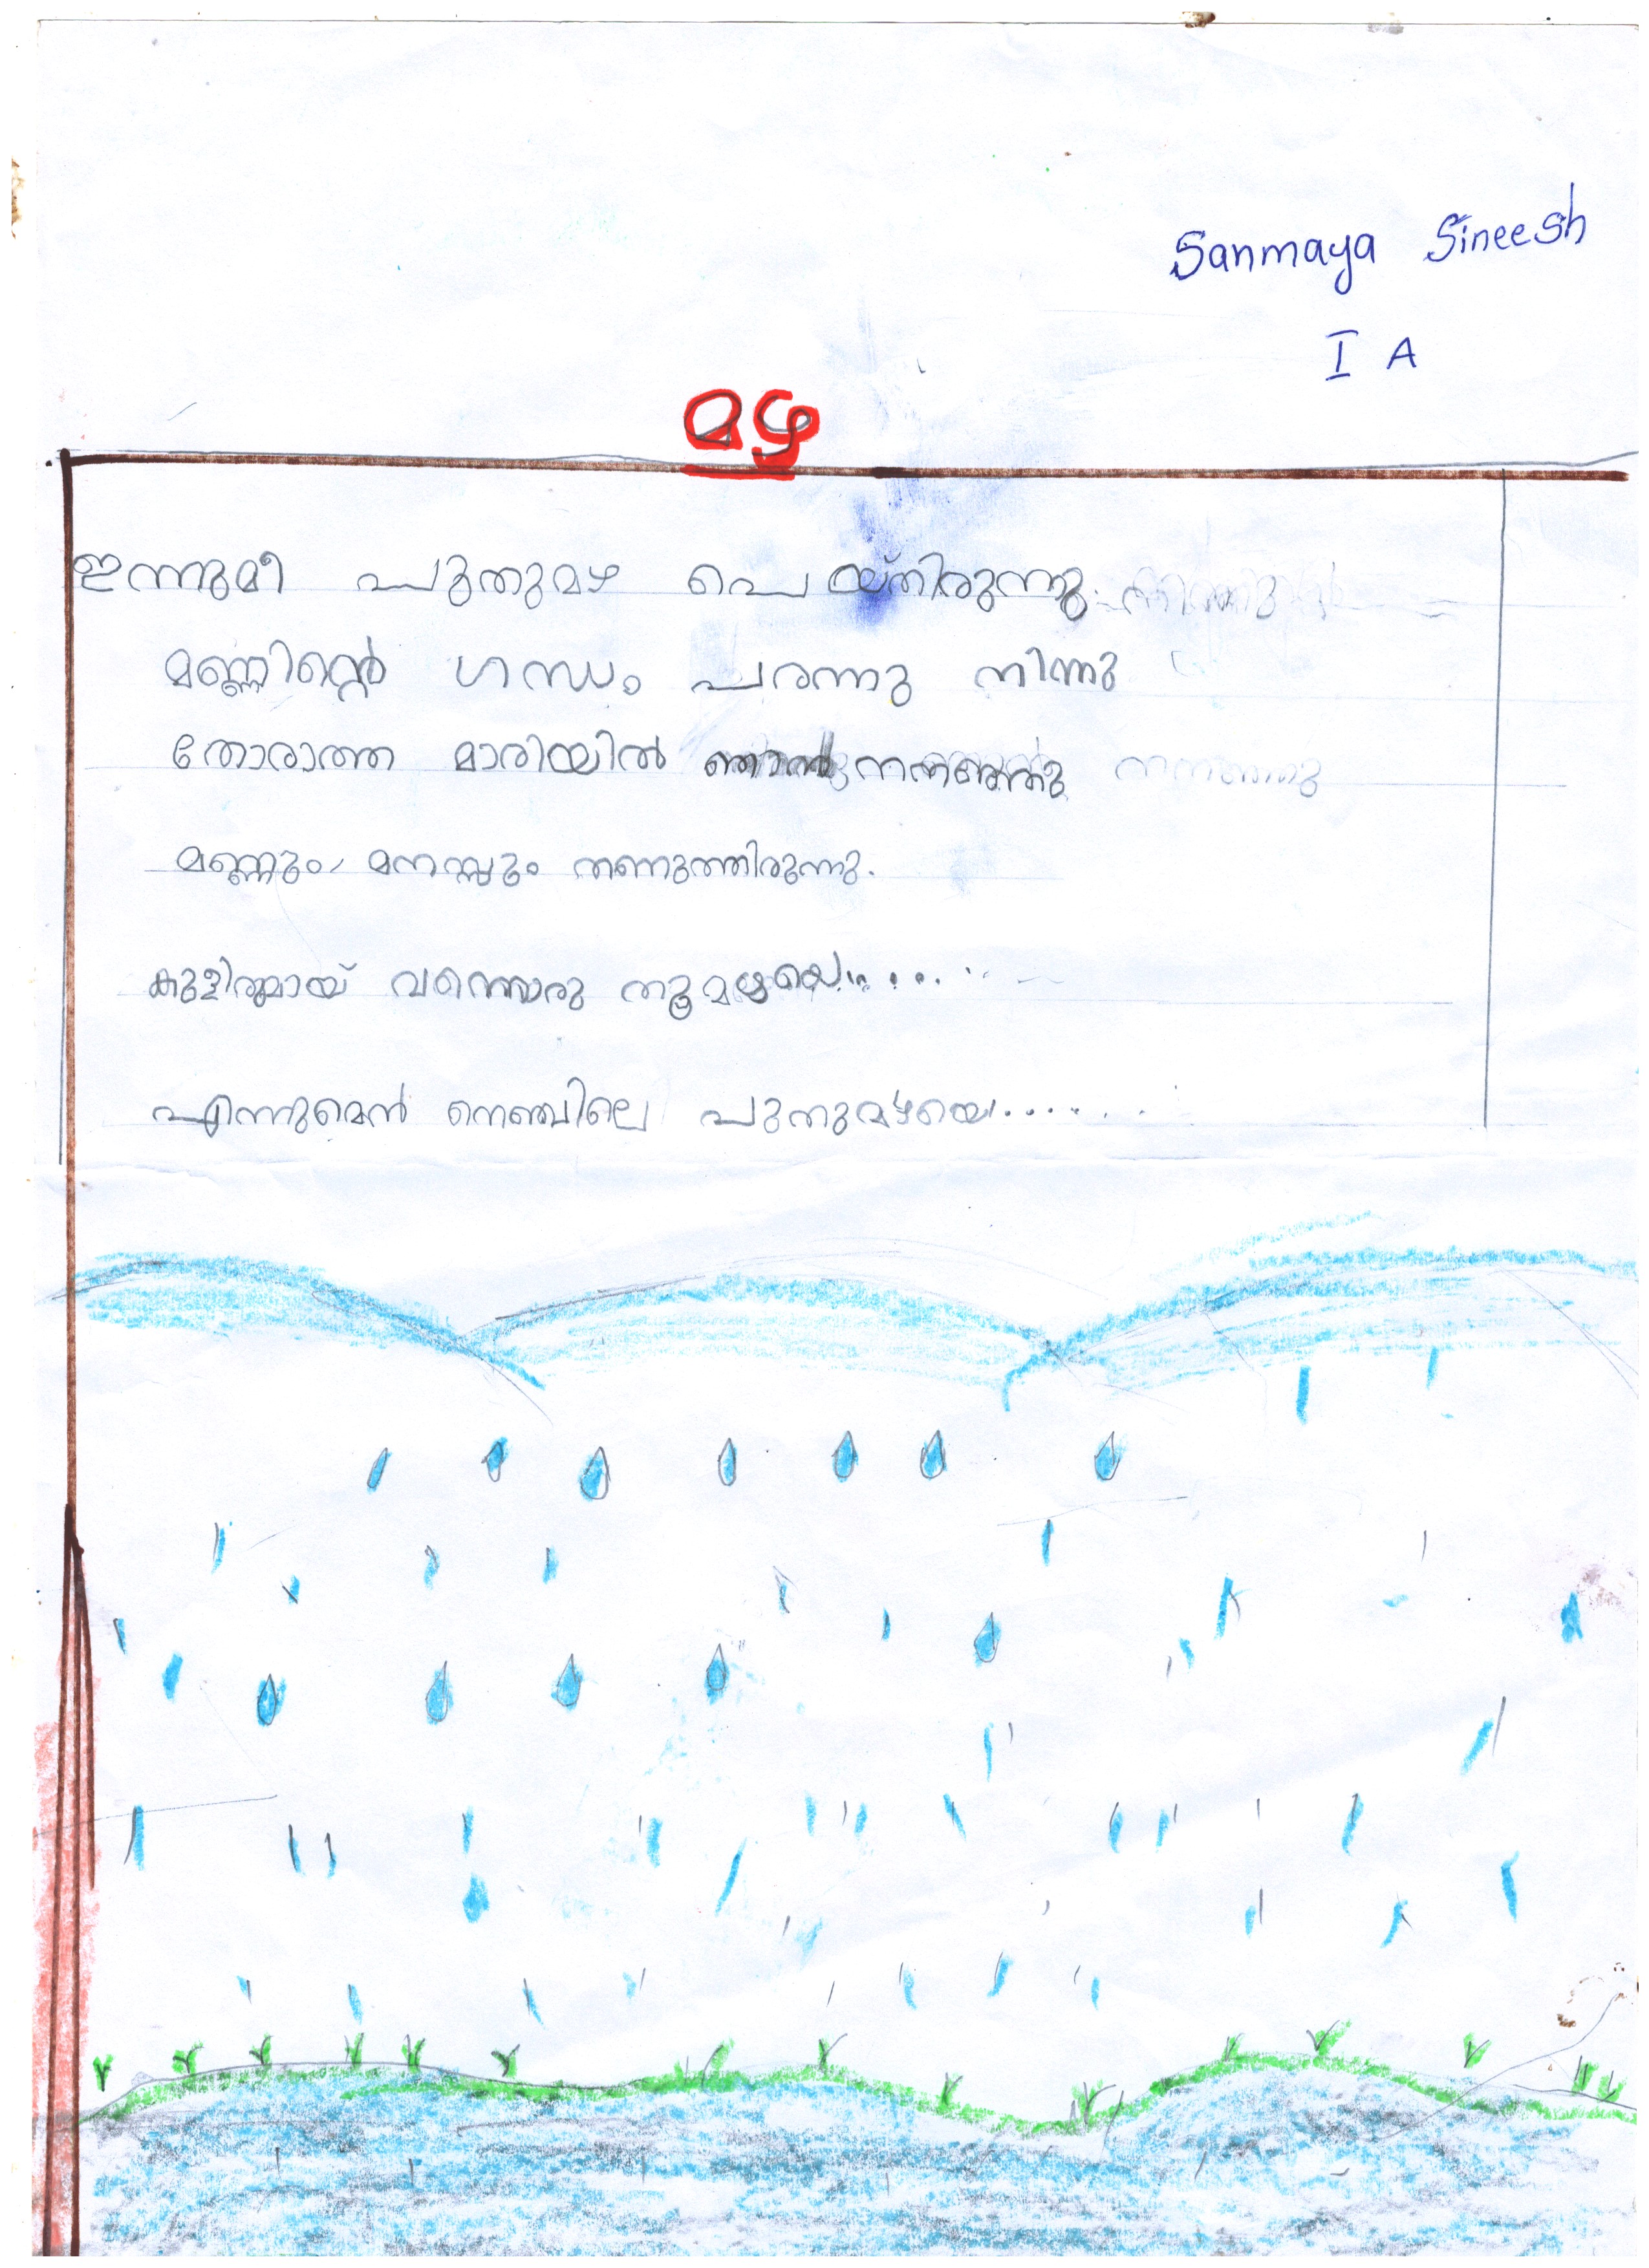 Sanmaya Sineesh
I A
മഴ
ഇന്നുമീ പുതുമഴ പെയ്തിരുന്നു.
മണ്ണിന്റെ ഗന്ധം പരന്നു നിന്നു
തോരാത്ത മാരിയിൽ ഞാൻ നനഞ്ഞു
മണ്ണും, മനസ്സും തണുത്തിരുന്നു.
കുളിരുമായ് വന്നൊരു തൂമഴയെ.......
എന്നുമെൻ നെഞ്ചിലെ പുതുമഴയെ........